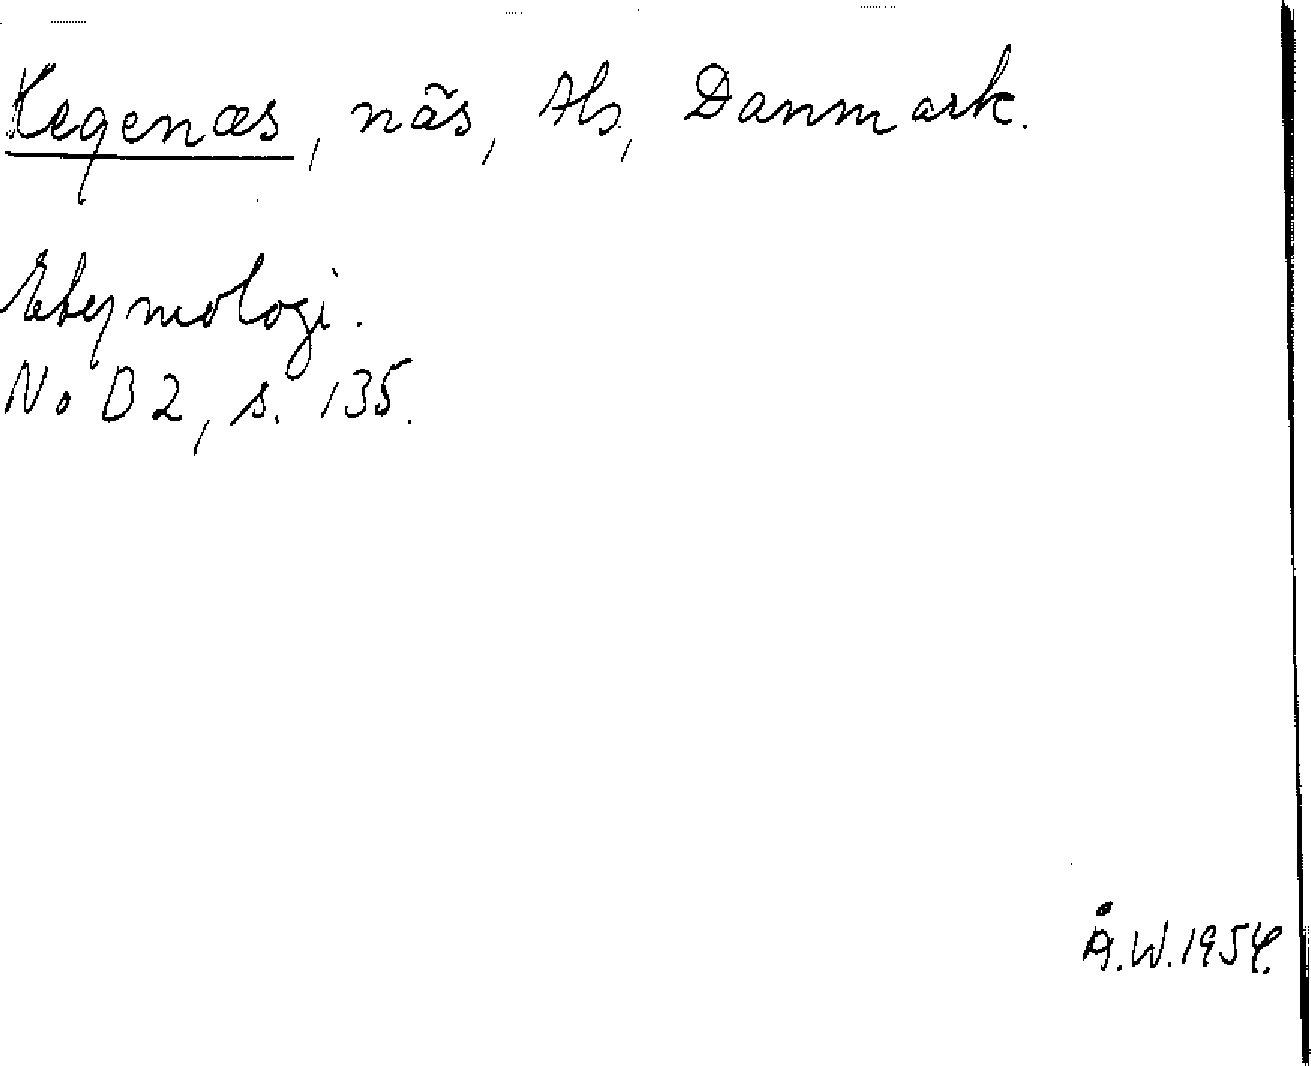 Kegenæs, näs, Als, Danmark.
Etymologi.
NoB 2, s. 135.
Å.W. 1954.